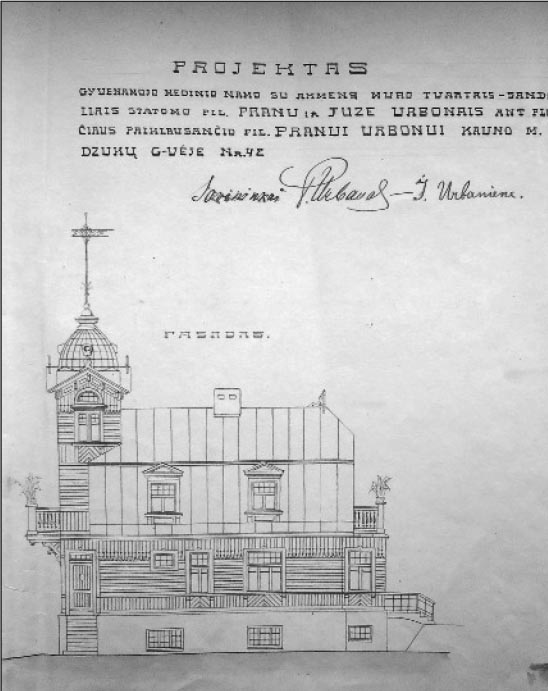 PROJEKTAS
GYVENAMOJO MEDINIO NAMO SU AKMENŲ MURO TVARTAIS-SANDĖ
LIAIS STATOMO PIL. PRANU IR JUZE URBONAIS ANT
ČIAUS PRIKLAUSANČIO PIL. PRANUI URBONUI KAUNO M.
DZUKŲ G-VĖJE NR. 42
Savininkai P. Urbonas – J. Urbaniene.
FASADAS.